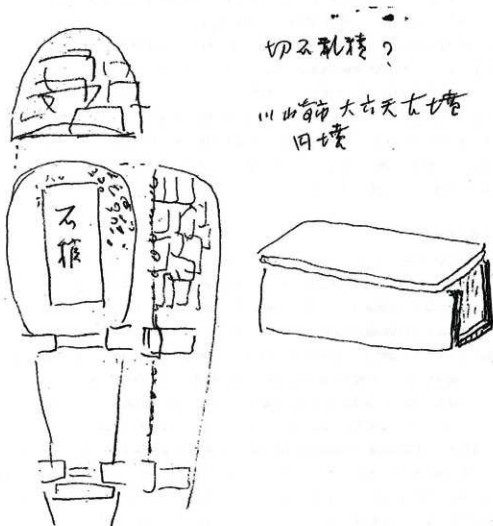 切石乱積?
川崎市大六天古墳
円墳
石棺